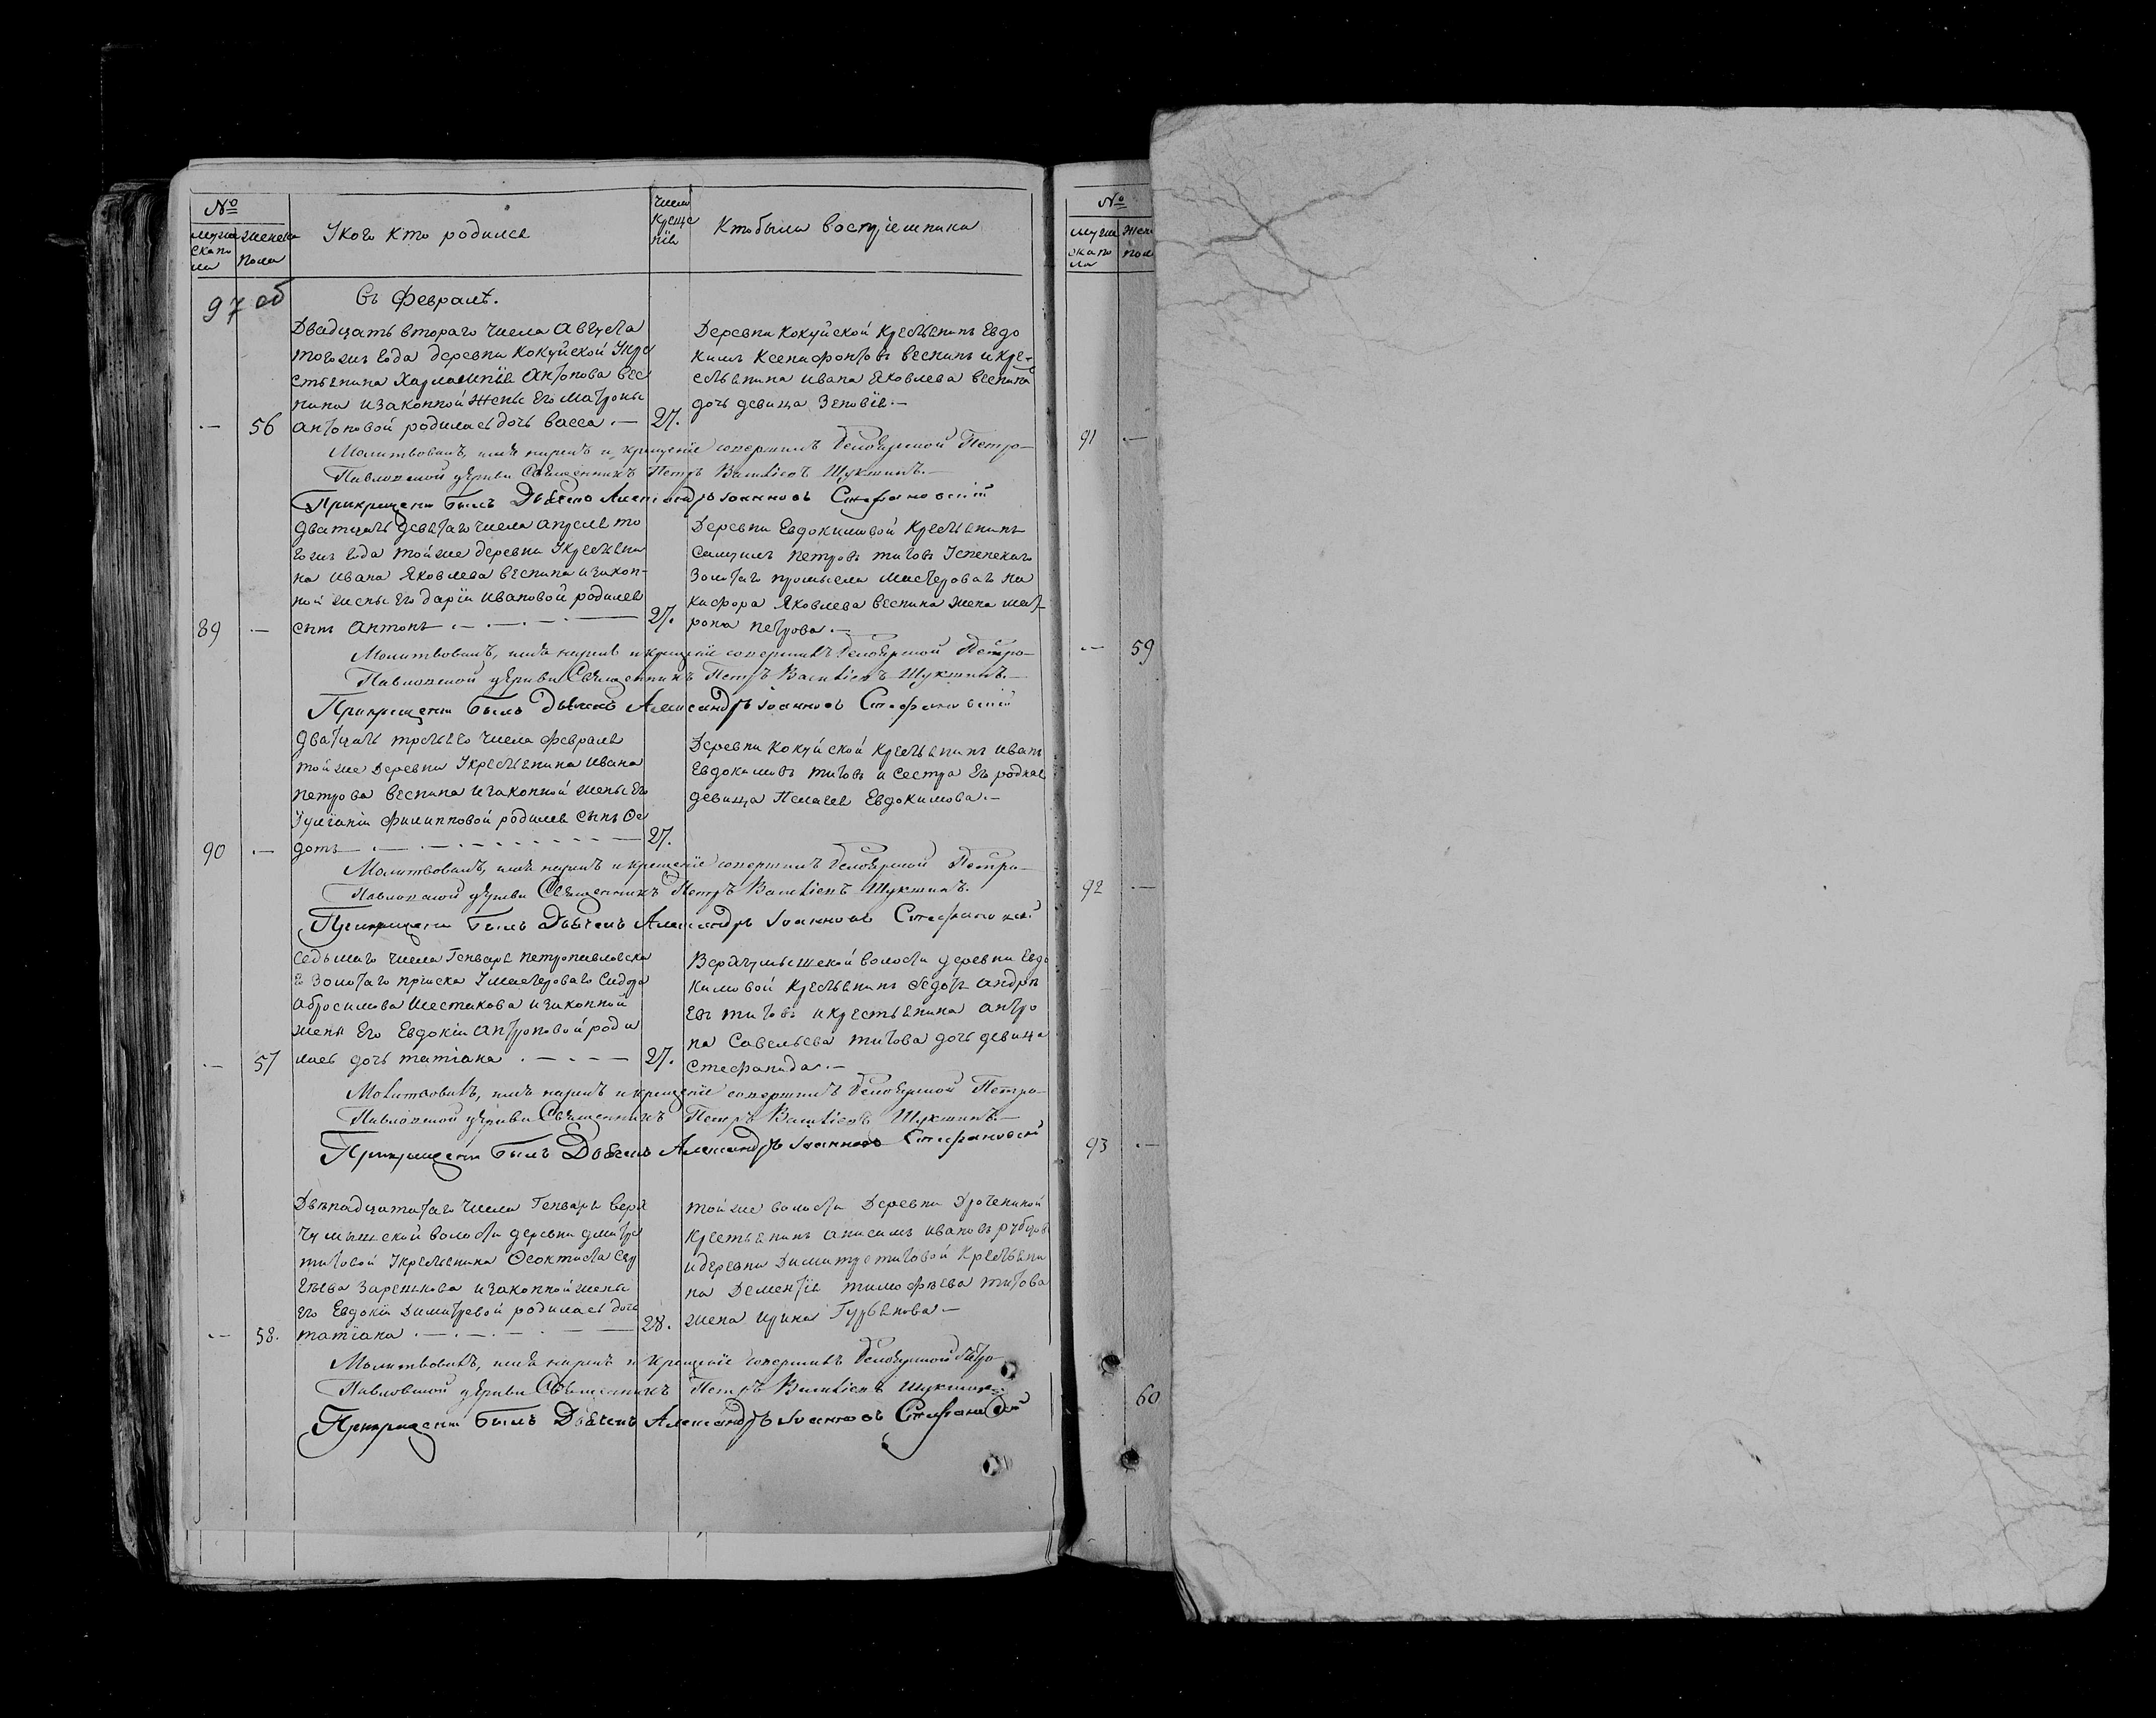 №
мужескаго пола
женска пола
У кого кто родился
числа крещенія
Кто были воспріемники
97 об
Въ Февралѣ.
Двадцать втораго числа Августа
тогожъ года деревни Кокуйской У кре
стьянина Харлампія Антонова вяс
нина и законной жены его Матроны
— 56 Антоновой родилась дочь Васса. — 27.
Деревни Кокуйской крестьянинъ Евдо
кимъ Ксенофонтовъ Вяснинъ и кре-
стьянина Ивана Яковлева Вяснина
дочь девица Зеновія. —
Молитвовалъ, имя нарекъ и крещеніе совершилъ Белоярской Петро-
Павловской церкви Священникъ Петръ Васильевъ Шукшинъ. —
При крещеніи былъ Дьячекъ Александръ Іоанновъ Стефановскій
Дватцать девятаго числа Апреля то
гожъ года той же деревни У крестьяни
на Ивана Яковлева Вяснина и закон-
ной жены его Дарьи Ивановой родился
89 — сынъ Антонъ — 27.
Деревни Евдокимовой крестьянинъ
Самуилъ Петровъ Титовъ Успенскаго
Золотаго промысла мастероваго Ни
кифора Яковлева Вяснина жена Мат-
рона Петрова. —
Молитвовалъ, имя нарекъ и крещеніе совершилъ Белоярской Петро-
Павловской церкви Священникъ Петръ Васильевъ Шукшинъ. —
При крещеніи былъ Дьячекъ Александръ Іоанновъ Стефановскій
Дватцать третьего числа Февраля
той же деревни У крестьянина Ивана
Петрова Вяснина и законной жены его
Іуліаніи Филипповой родился сынъ Ѳе
90 — дотъ — 27.
Деревни Кокуйской крестьянинъ Иванъ
Евдокимовъ Титовъ и сестра его родная
девица Пелагея Евдокимова. —
Молитвовалъ, имя нарекъ и крещеніе совершилъ Белоярской Петро-
Павловской церкви Священникъ Петръ Васильевъ Шукшинъ.
При крещеніи былъ Дьячекъ Александръ Іоанновъ Стефановскій
Седьмаго числа Генваря Петропавловска
го Золотаго пріиска У мастероваго Сидора
Абросимова Шестакова и законной
жены его Евдокіи Антроповой роди
— 57 лась дочь Татіана — 27.
Верхчумышской волости деревни Евдо
кимовой крестьянинъ Ѳедотъ Андре
евъ Титовъ и крестьянина Антро
па Савельева Титова дочь девица
Стефанида. —
Молитвовалъ, имя нарекъ и крещеніе совершилъ Белоярской Петро-
Павловской церкви Священникъ Петръ Васильевъ Шукшинъ. —
При крещеніи былъ Дьячекъ Александръ Іоанновъ Стефановскій
Двенадцататаго числа Генваря Верх
чумышской волости деревни Дмитре
титовой У крестьянина Ѳеоктиста Сер
геева Заренкова и законной жены
его Евдокіи Димитревой родилась дочь
— 58. Татіана — 28.
Той же волости Деревни Дрочениной
крестьянинъ Анисимъ Ивановъ Рубцовъ
и деревни Димитретитовой крестьяни
на Дементія Тимофеева Титова
жена Ирина Гурьянова —
Молитвовалъ, имя нарекъ и крещеніе совершилъ Белоярской Петро-
Павловской церкви Священникъ Петръ Васильевъ Шукшинъ.
При крещеніи былъ Дьячекъ Александръ Іоанновъ Стефановскій
№
91 —
— 59
92 —
93 —
60